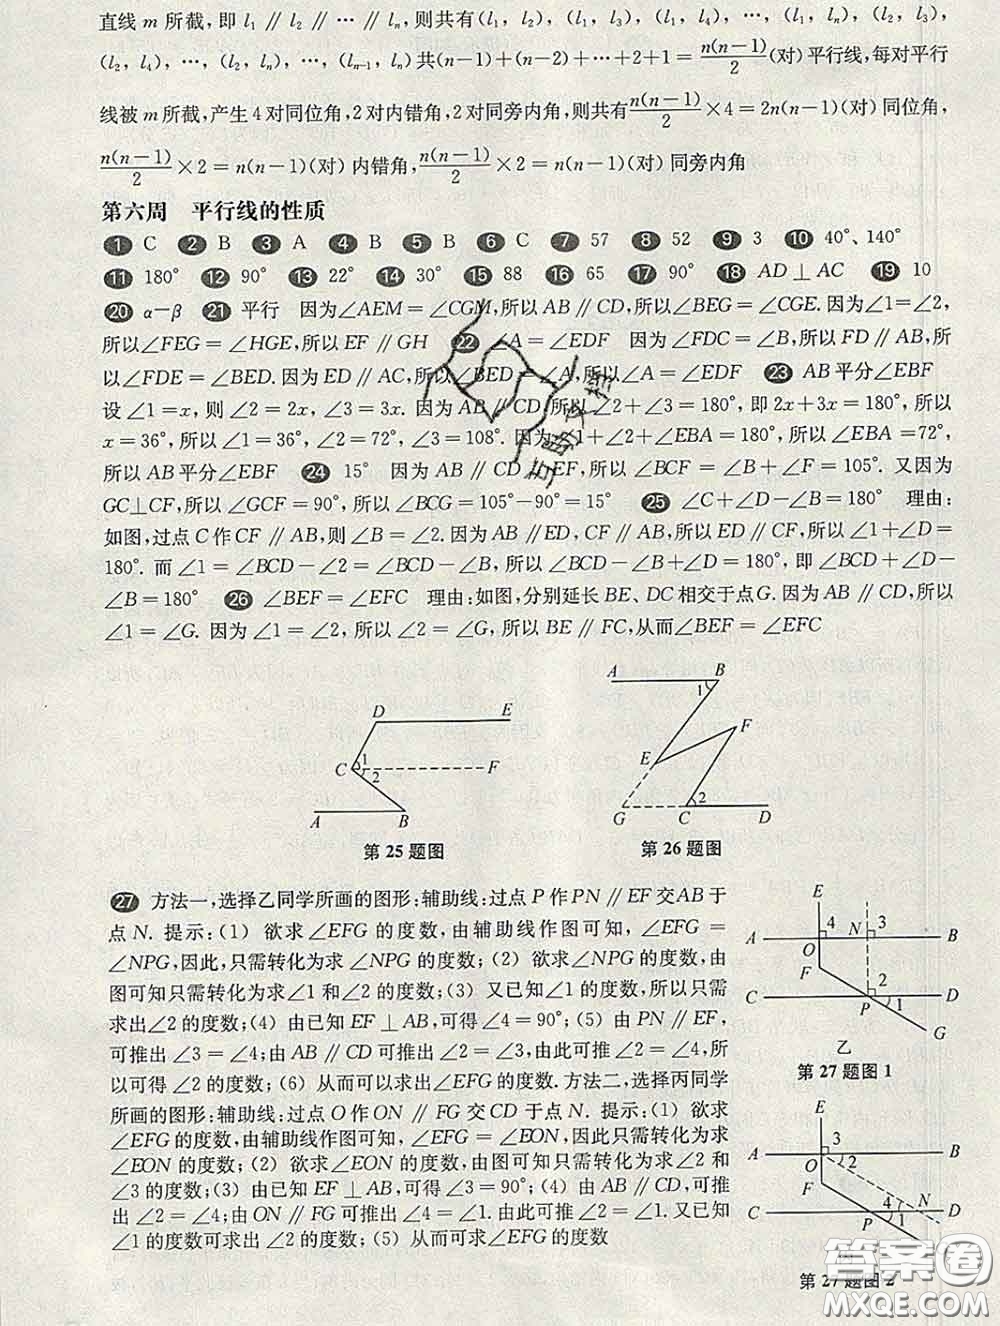 直线 m 所截,即 l₁ ∥ l₂ ∥ … ∥ lₙ,则共有(l₁, l₂), (l₁, l₃), (l₁, l₄), …, (l₁, lₙ), (l₂, l₃),
(l₂, l₄), …, (l₂, lₙ), …, (lₙ₋₁, lₙ)共(n−1)+(n−2)+…+2+1=n(n−1)/2(对)平行线,每对平行
线被 m 所截,产生 4 对同位角,2 对内错角,2 对同旁内角,则共有n(n−1)/2×4=2n(n−1)(对)同位角,
n(n−1)/2×2=n(n−1)(对)内错角,n(n−1)/2×2=n(n−1)(对)同旁内角
第六周 平行线的性质
1 C 2 B 3 A 4 B 5 B 6 C 7 57 8 52 9 3 10 40°、140°
11 180° 12 90° 13 22° 14 30° 15 88 16 65 17 90° 18 AD⊥AC 19 10
20 α−β 21 平行 因为∠AEM=∠CGM,所以 AB∥CD,所以∠BEG=∠CGE.因为∠1=∠2,
所以∠FEG=∠HGE,所以 EF∥GH 22 ∠A=∠EDF 因为∠FDC=∠B,所以 FD∥AB,所
以∠FDE=∠BED.因为 ED∥AC,所以∠BED=∠A,所以∠A=∠EDF 23 AB平分∠EBF
设∠1=x,则∠2=2x,∠3=3x.因为 AB∥CD,所以∠2+∠3=180°,即 2x+3x=180°,所以
x=36°,所以∠1=36°,∠2=72°,∠3=108°.因为∠1+∠2+∠EBA=180°,所以∠EBA=72°,
所以 AB 平分∠EBF 24 15° 因为 AB∥CD∥EF,所以∠BCF=∠B+∠F=105°.又因为
GC⊥CF,所以∠GCF=90°,所以∠BCG=105°−90°=15° 25 ∠C+∠D−∠B=180° 理由:
如图,过点 C 作 CF∥AB,则∠B=∠2.因为 AB∥ED,CF∥AB,所以 ED∥CF,所以∠1+∠D=
180°.而∠1=∠BCD−∠2=∠BCD−∠B,所以∠BCD−∠B+∠D=180°,即∠BCD+∠D−
∠B=180° 26 ∠BEF=∠EFC 理由:如图,分别延长 BE、DC 相交于点G.因为 AB∥CD,所以
∠1=∠G.因为∠1=∠2,所以∠2=∠G,所以 BE∥FC,从而∠BEF=∠EFC
D E
C 1 2 F
A B
第 25 题图
A 1 B
F
E
G C 2 D
第 26 题图
27 方法一,选择乙同学所画的图形:辅助线:过点 P 作 PN∥EF 交 AB 于
点 N.提示:(1) 欲求∠EFG 的度数,由辅助线作图可知,∠EFG=
∠NPG,因此,只需转化为求∠NPG 的度数;(2) 欲求∠NPG 的度数,由
图可知只需转化为求∠1和∠2的度数;(3) 又已知∠1的度数,所以只需
求出∠2的度数;(4) 由已知 EF⊥AB,可得∠4=90°;(5) 由 PN∥EF,
可推出∠3=∠4;由 AB∥CD 可推出∠2=∠3,由此可推∠2=∠4,所
以可得∠2的度数;(6) 从而可以求出∠EFG的度数.方法二,选择丙同学
所画的图形:辅助线:过点 O 作 ON∥FG 交 CD 于点 N.提示:(1) 欲求
∠EFG 的度数,由辅助线作图可知,∠EFG=∠EON,因此只需转化为求
∠EON 的度数;(2) 欲求∠EON 的度数,由图可知只需转化为求∠2和
∠3的度数;(3) 由已知 EF⊥AB,可得∠3=90°;(4) 由 AB∥CD,可推
出∠2=∠4;由 ON∥FG 可推出∠4=∠1.由此可推∠2=∠1.又已知
∠1的度数可求出∠2的度数;(5) 从而可求∠EFG的度数
E
4 N 3
A O B
F
2
C P 1 D
G
乙
第 27 题图 1
E
3
A O 2 B
F
4 N
C P 1 D
第 27 题图 2
答案圈
MXQE.COM